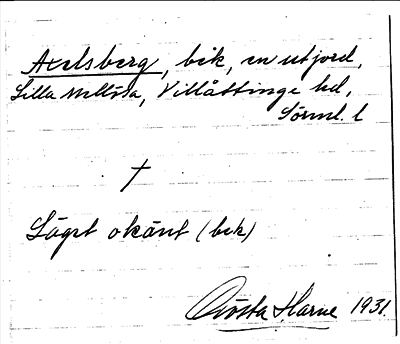 Axelsberg, bik, en utjord,
Lilla Mellösa, Villåttinge hd,
Sörml. l
†
Läget okänt (bik)
Gösta Harne 1931.